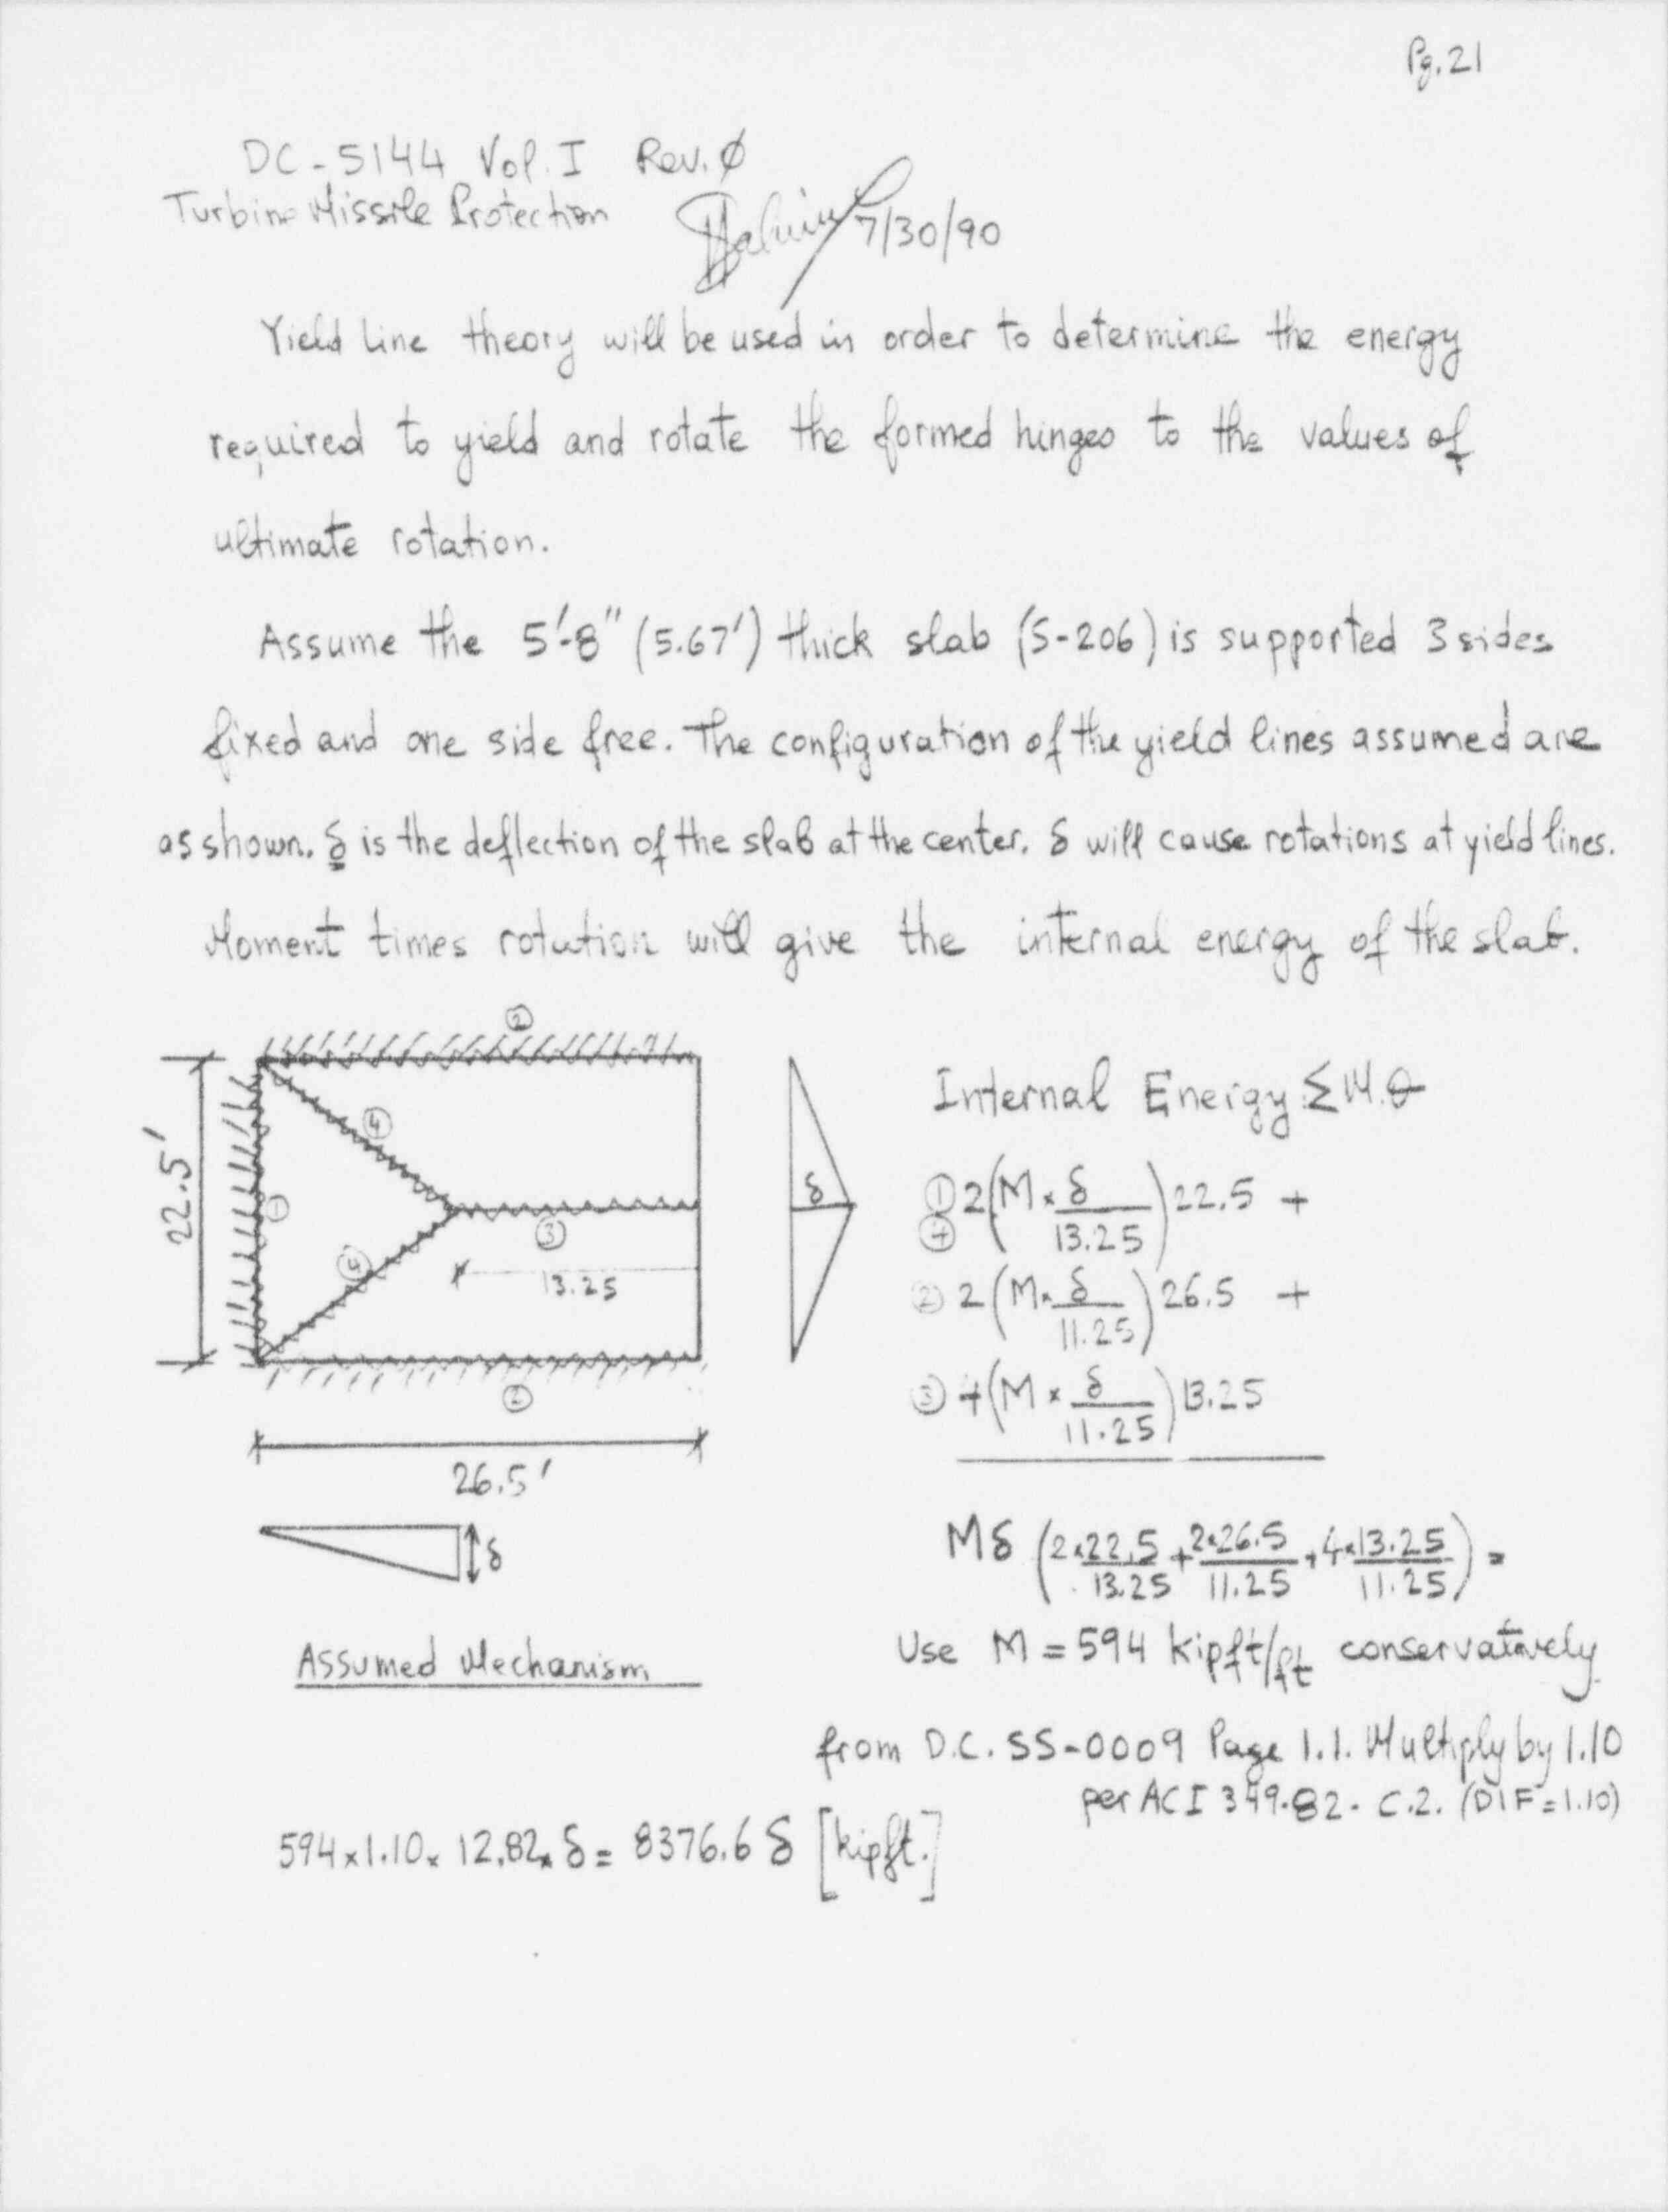 Pg. 21
DC-5144 Vol. I Rev. Ø
Turbine Missile Protection
7/30/90
Yield line theory will be used in order to determine the energy
required to yield and rotate the formed hinges to the values of
ultimate rotation.
Assume the 5'-8" (5.67') thick slab (S-206) is supported 3 sides
fixed and one side free. The configuration of the yield lines assumed are
as shown. δ is the deflection of the slab at the center. δ will cause rotations at yield lines.
Moment times rotation will give the internal energy of the slab.
②
④
22.5'
①
③
④
13.25
②
26.5'
δ
δ
Assumed Mechanism
Internal Energy: Σ M.θ
① ④ 2(M × δ/13.25) 22.5 +
② 2(M × δ/11.25) 26.5 +
③ 4(M × δ/11.25) 13.25
Mδ (2×22.5/13.25 + 2×26.5/11.25 + 4×13.25/11.25) =
Use M = 594 kipft/ft conservatively
from D.C. SS-0009 Page 1.1. Multiply by 1.10
per ACI 349-82 - C.2. (DIF = 1.10)
594 × 1.10 × 12.82 × δ = 8376.6 δ [kipft.]